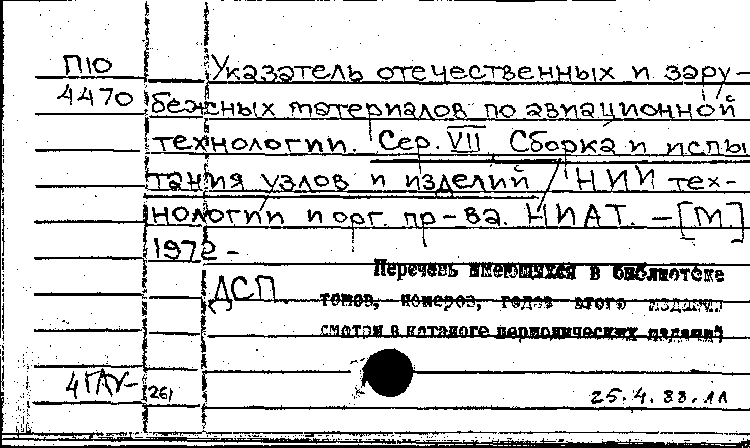 П10
4470
Указатель отечественных и зару-
бежных материалов по авиационной
технологии. Сер. VII Сборка и испы
тания узлов и изделий / НИИ тех-
нологии и орг. пр-ва. НИАТ. - [М.]
1972 -
ДСП.
Перечень имеющихся в библиотеке
томов, номеров, годов этого издания
смотри в каталоге периодических изданий
261
25.4.83.